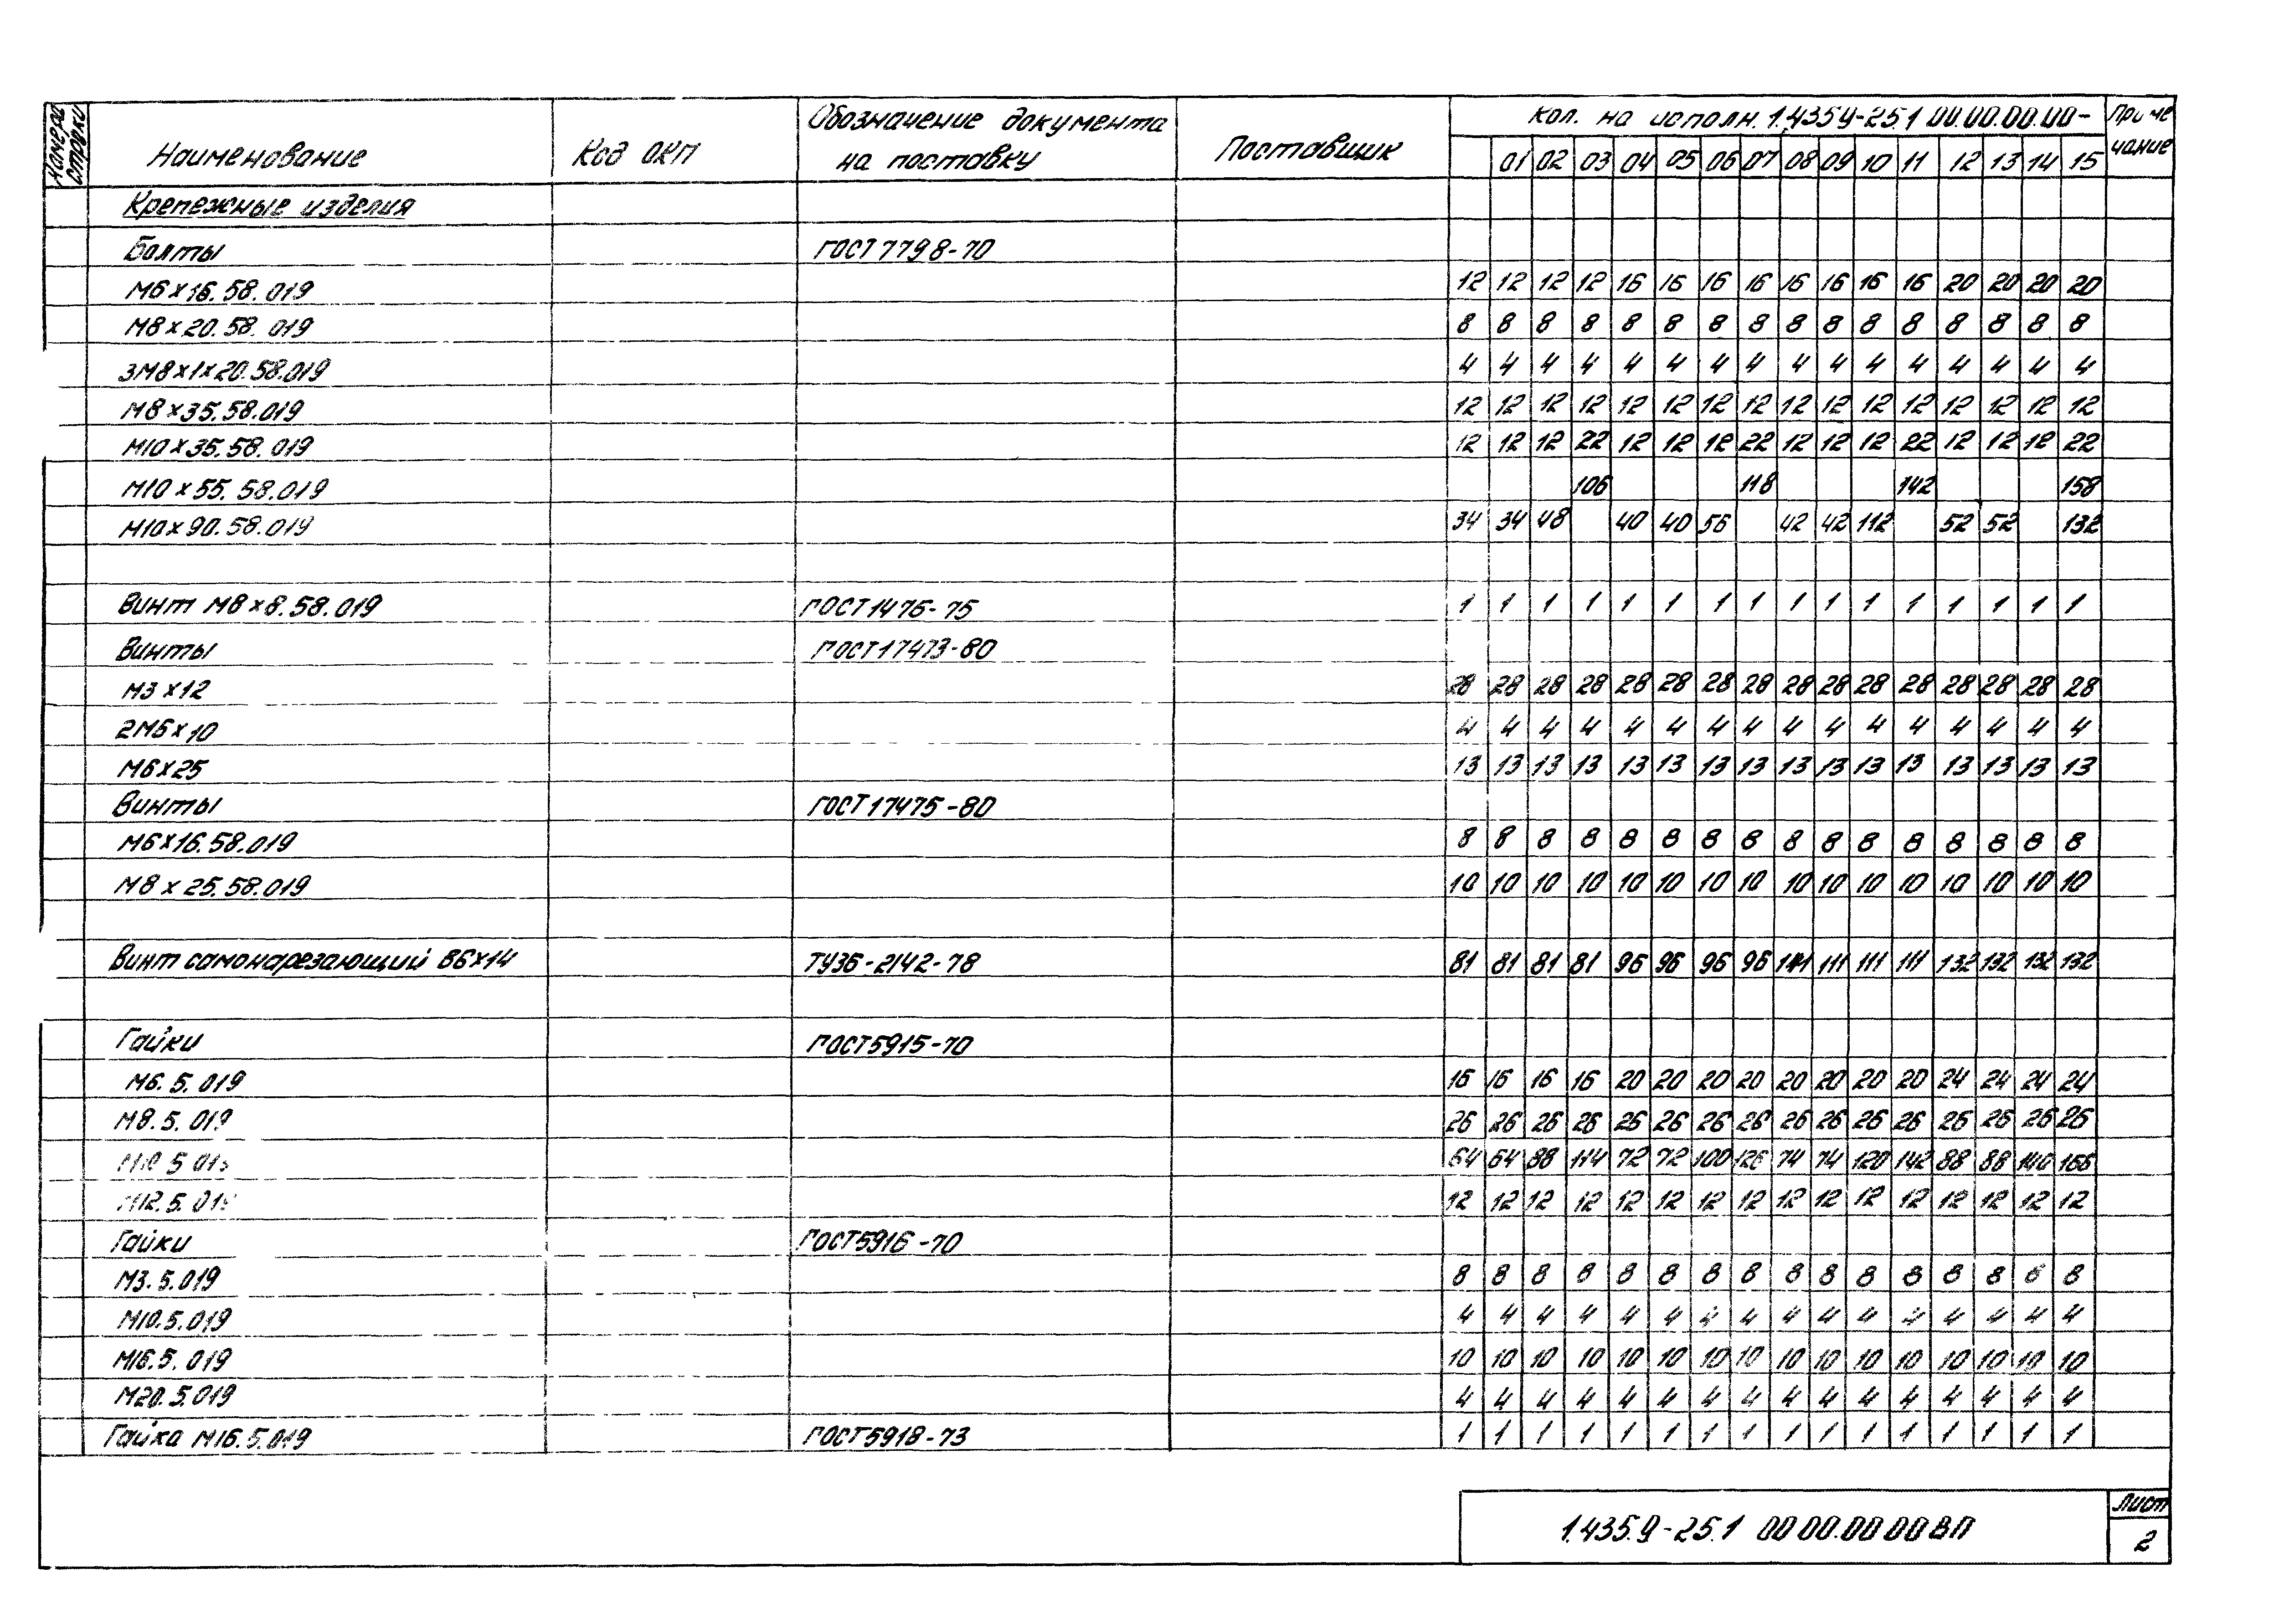 Номера строки Наименование Код ОКП Обозначение документа на поставку Поставщик Кол. на исполн. 1.435.9-25.1 00.00.00.00- Примечание
01 02 03 04 05 06 07 08 09 10 11 12 13 14 15
Крепежные изделия
Болты ГОСТ 7798-70
М6х16.58.019 12 12 12 12 16 16 16 16 16 16 16 16 20 20 20 20
М8х20.58.019 8 8 8 8 8 8 8 8 8 8 8 8 8 8 8 8
3М8х1х20.58.019 4 4 4 4 4 4 4 4 4 4 4 4 4 4 4 4
М8х35.58.019 12 12 12 12 12 12 12 12 12 12 12 12 12 12 12 12
М10х35.58.019 12 12 12 22 12 12 12 22 12 12 12 22 12 12 12 22
М10х55.58.019 106 118 142 158
М10х90.58.019 34 34 48 40 40 56 42 42 112 52 52 132
Винт М8х8.58.019 ГОСТ 1476-75 1 1 1 1 1 1 1 1 1 1 1 1 1 1 1 1
Винты ГОСТ 17473-80
М3х12 28 28 28 28 28 28 28 28 28 28 28 28 28 28 28 28
2М6х10 4 4 4 4 4 4 4 4 4 4 4 4 4 4 4 4
М6х25 13 13 13 13 13 13 13 13 13 13 13 13 13 13 13 13
Винты ГОСТ 17475-80
М6х16.58.019 8 8 8 8 8 8 8 8 8 8 8 8 8 8 8 8
М8х25.58.019 10 10 10 10 10 10 10 10 10 10 10 10 10 10 10 10
Винт самонарезающий В6х14 ТУ36-2142-78 81 81 81 81 96 96 96 96 111 111 111 111 132 132 132 132
Гайки ГОСТ 5915-70
М6.5.019 16 16 16 16 20 20 20 20 20 20 20 20 24 24 24 24
М8.5.019 26 26 26 26 26 26 26 26 26 26 26 26 26 26 26 26
М10.5.019 64 64 88 114 72 72 100 126 74 74 120 142 88 88 140 166
М12.5.019 12 12 12 12 12 12 12 12 12 12 12 12 12 12 12 12
Гайки ГОСТ 5916-70
М3.5.019 8 8 8 8 8 8 8 8 8 8 8 8 8 8 8 8
М10.5.019 4 4 4 4 4 4 4 4 4 4 4 4 4 4 4 4
М16.5.019 10 10 10 10 10 10 10 10 10 10 10 10 10 10 10 10
М20.5.019 4 4 4 4 4 4 4 4 4 4 4 4 4 4 4 4
Гайка М16.5.019 ГОСТ 5918-73 1 1 1 1 1 1 1 1 1 1 1 1 1 1 1 1
1.435.9-25.1 00 00.00 00 ВП
Лист
2